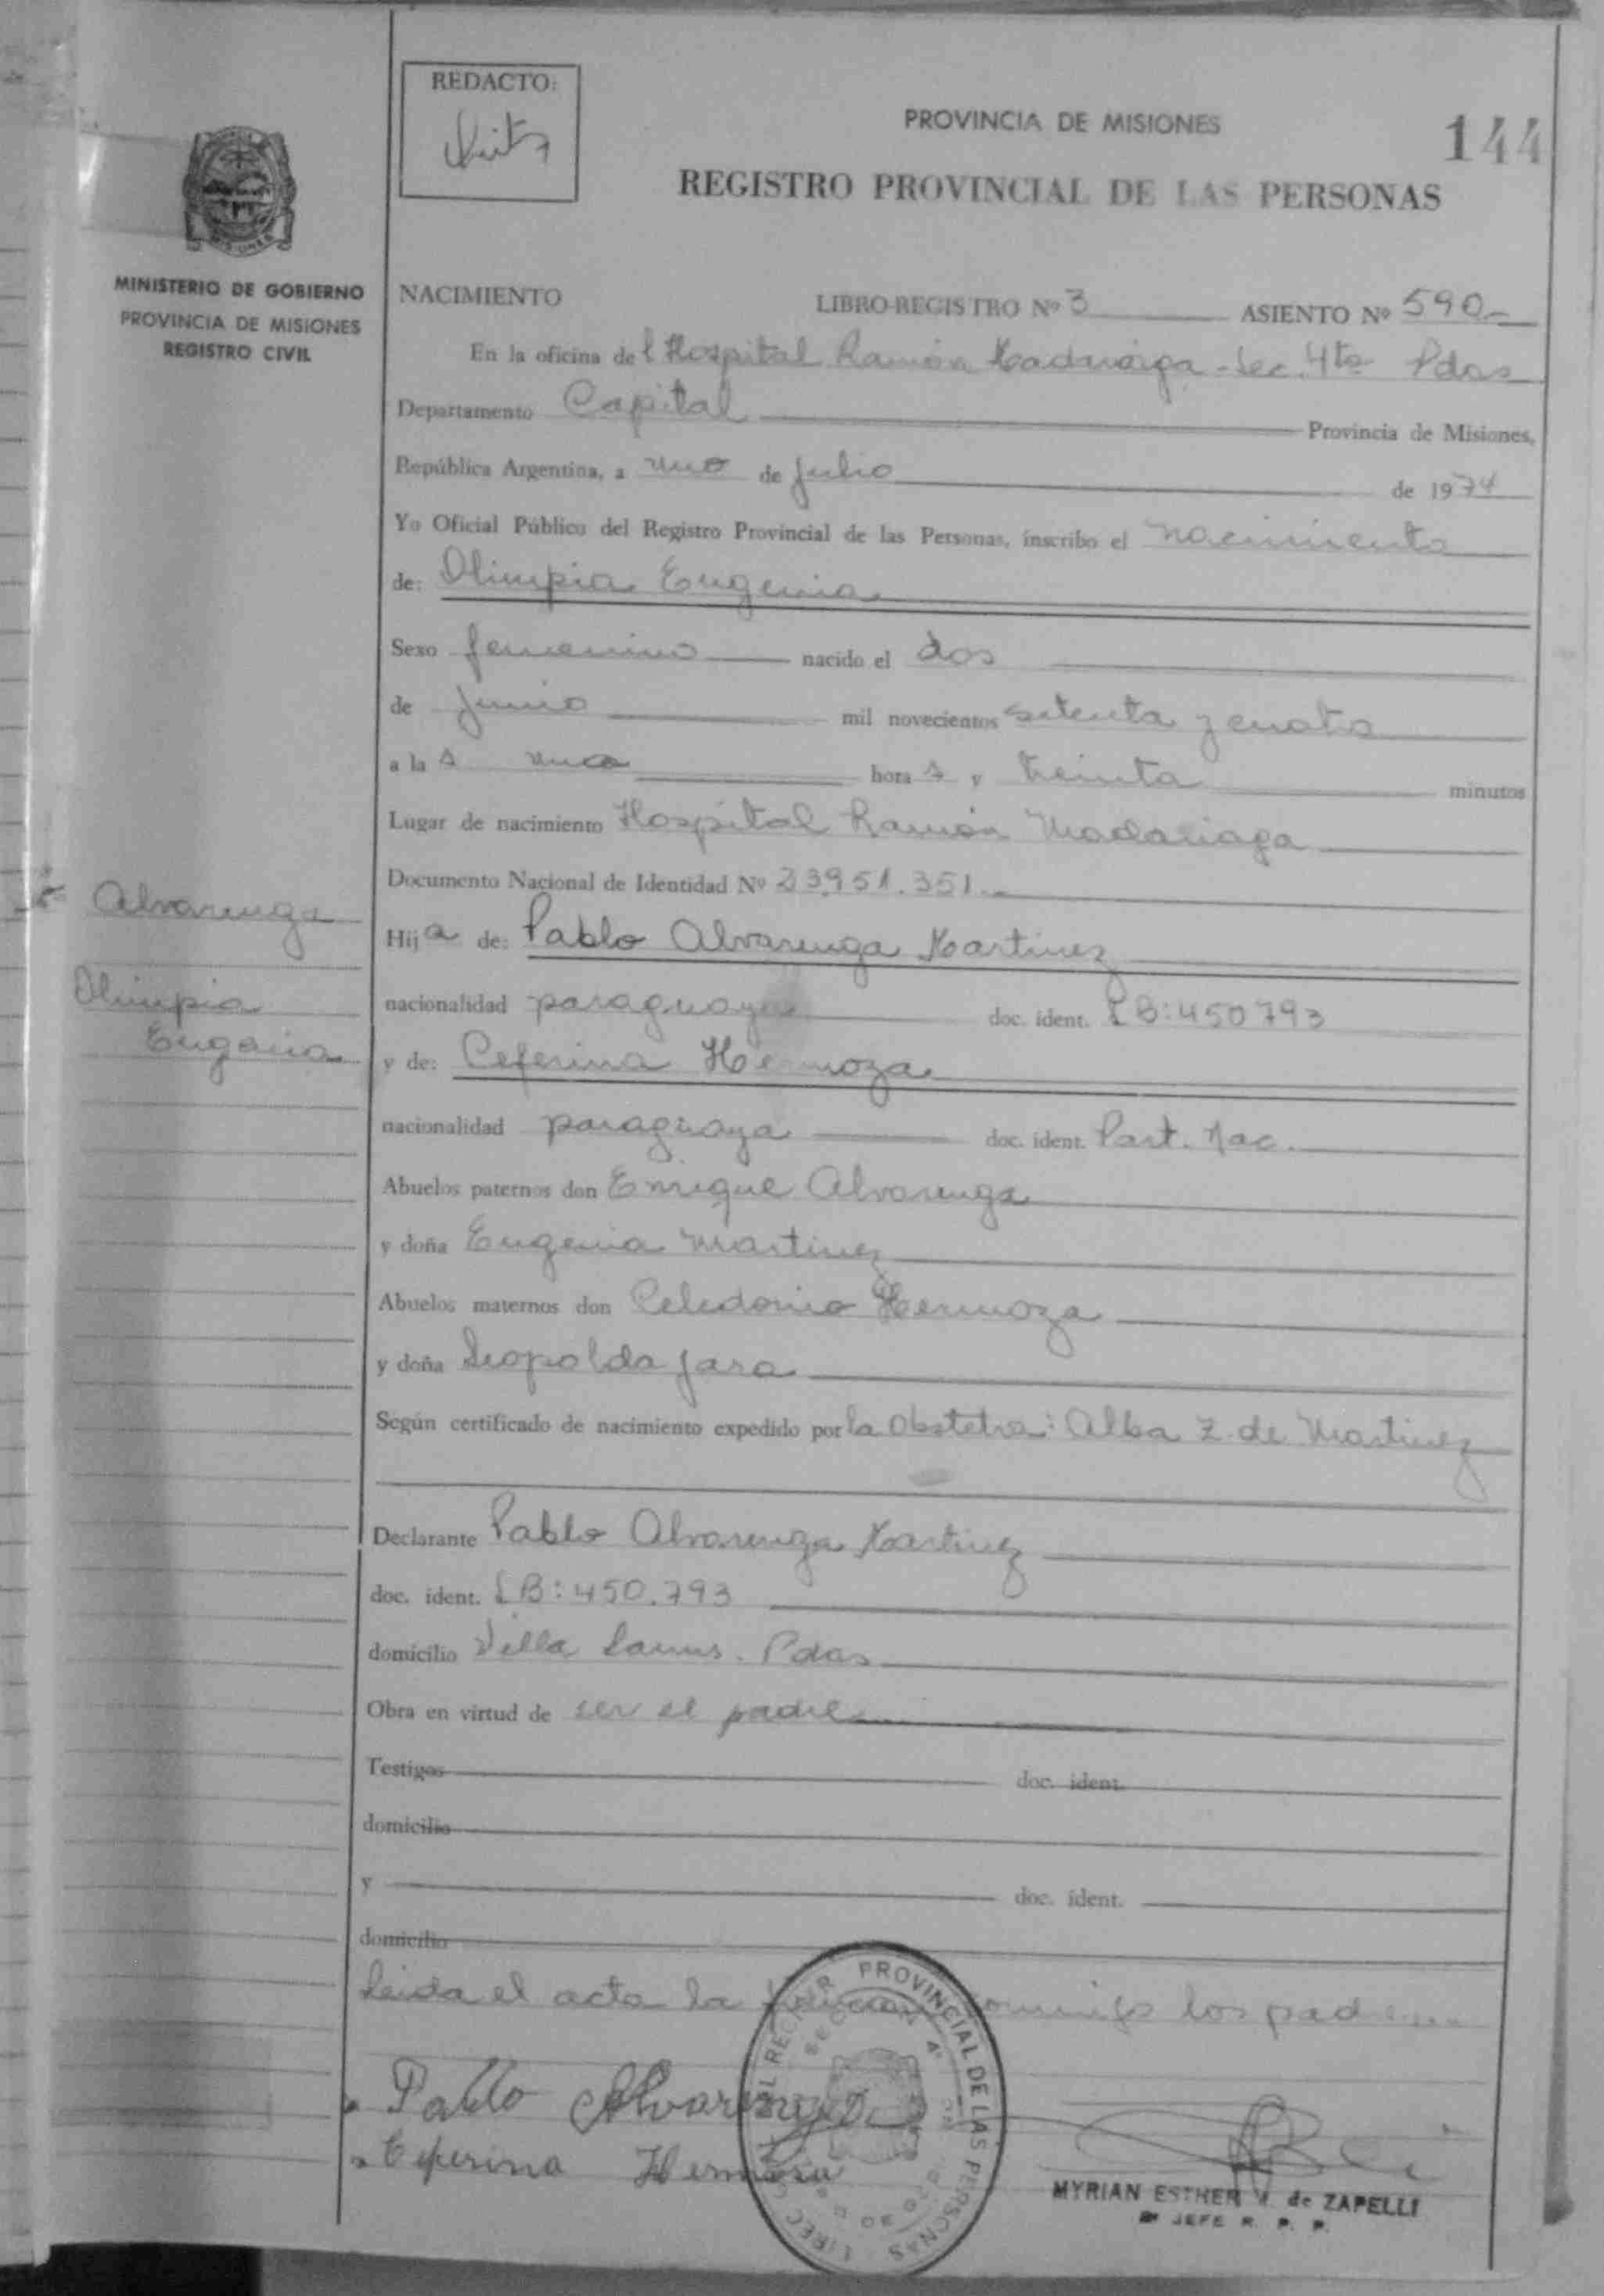 REDACTO:
PROVINCIA DE MISIONES
144
REGISTRO PROVINCIAL DE LAS PERSONAS
MINISTERIO DE GOBIERNO
PROVINCIA DE MISIONES
REGISTRO CIVIL
NACIMIENTO LIBRO-REGISTRO Nº 3 ASIENTO Nº 590.-
En la oficina del Hospital Ramón Madariaga - Sec. 4ta Pdas
Departamento Capital Provincia de Misiones,
República Argentina, a uno de julio de 1974
Yo Oficial Público del Registro Provincial de las Personas, inscribo el nacimiento
de: Olimpia Eugenia
Sexo femenino nacido el dos
de junio mil novecientos setenta y cuatro
a la s una hora s y treinta minutos
Lugar de nacimiento Hospital Ramón Madariaga
Documento Nacional de Identidad Nº 23.951.351.-
Alvarenga
Olimpia
Eugenia
Hija de: Pablo Alvarenga Martinez
nacionalidad paraguaya doc. ident. LB: 450793
y de: Ceferina Hermoza
nacionalidad paraguaya doc. ident. Part. Nac.
Abuelos paternos don Enrique Alvarenga
y doña Eugenia Martinez
Abuelos maternos don Celedonio Hermoza
y doña Leopolda Jara
Según certificado de nacimiento expedido por la Obstetra: Alba Z. de Martinez
Declarante Pablo Alvarenga Martinez
doc. ident. LB: 450.793
domicilio Villa Lanus. Pdas
Obra en virtud de ser el padre
Testigos doc. ident.
domicilio
y doc. ident.
domicilio
Leida el acta la firman conmigo los padres
Pablo Alvarenga
Ceferina Hermosa
PROVINCIAL DE LAS PERSONAS
MYRIAN ESTHER de ZAPELLI
JEFE R. P. P.